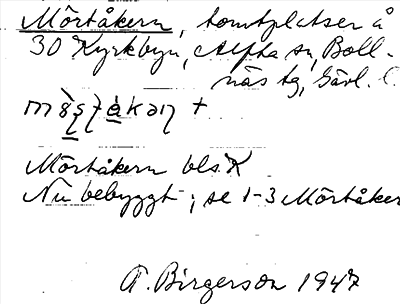 Mörtåkern, tomtplatser å
30 Kyrkbyn, Alfta sn, Boll-
näs tg, Gävl. l.
+
Mörtåkern bls. K
Nu bebyggt; se 1-3 Mörtåker
A. Birgerson 1947